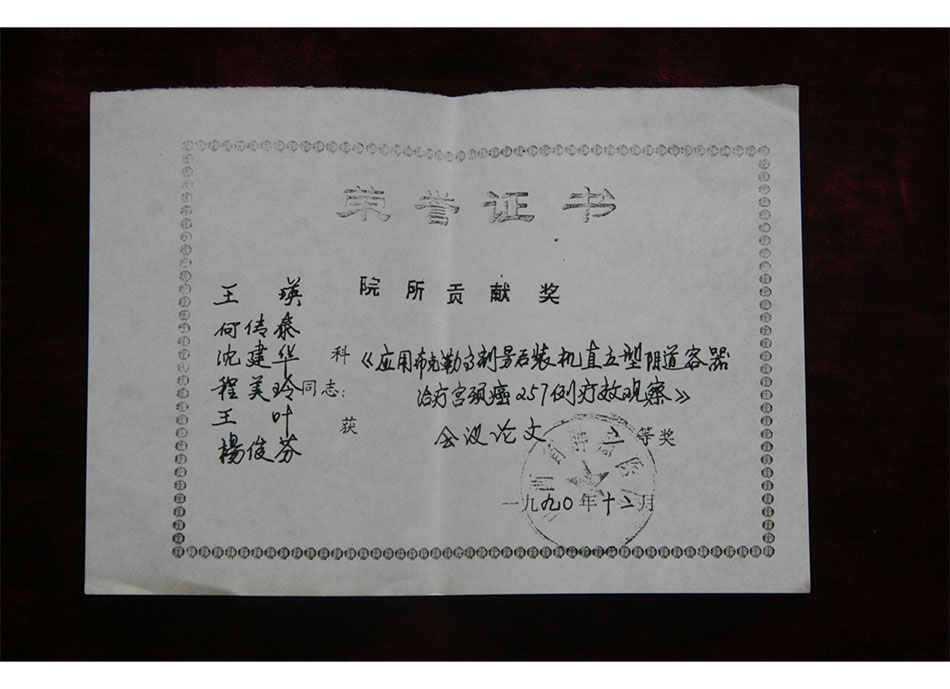 荣誉证书
院所贡献奖
王瑛
何传泰
沈建华
程美玲同志:
王叶
楊俊芬
科《应用布克勒高剂量后装机直立型阴道容器
治疗宫颈癌257例疗效观察》
获会议论文二等奖
一九九〇年十二月